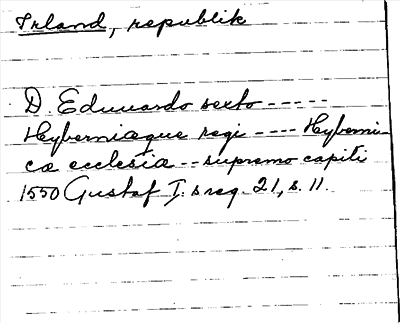 Irland, republik
D. Eduuardo sexto -----
Hyberniaeque regi ---- Hyberni-
cæ ecclesiæ -- supremo capiti
1550 Gustaf I:s reg. 21, s. 11.